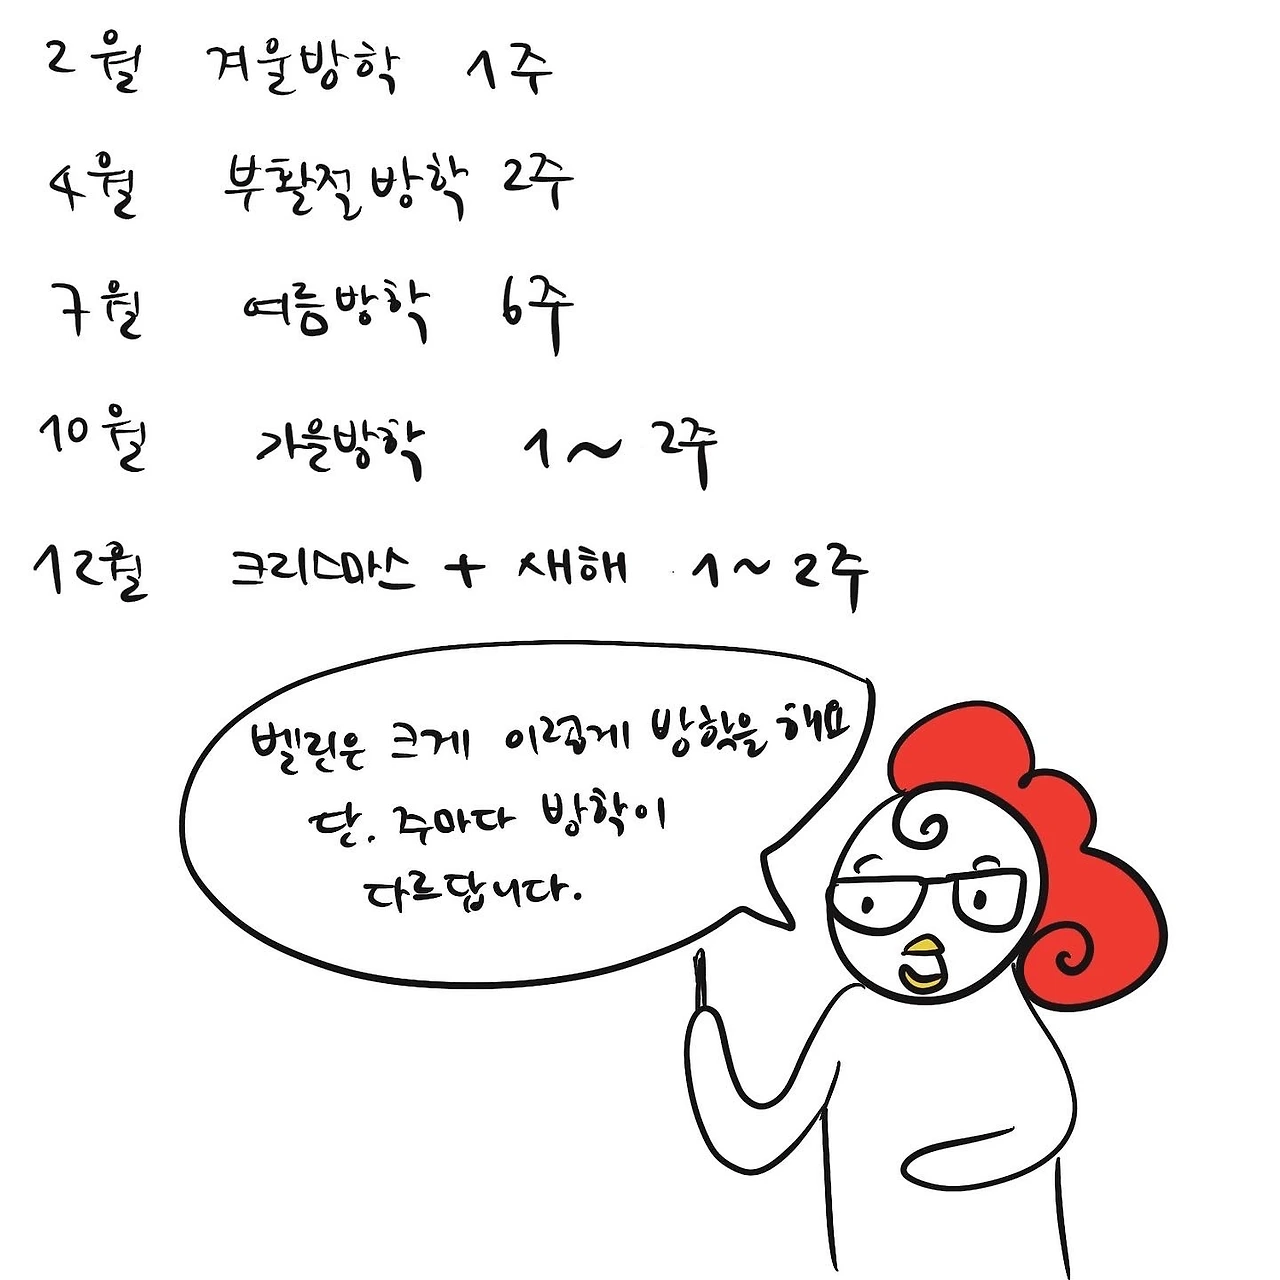 2월 겨울방학 1주
4월 부활절방학 2주
7월 여름방학 6주
10월 가을방학 1~2주
12월 크리스마스 + 새해 1~2주
벨린은 크게 이렇게 방학을 해요
단. 주마다 방학이
다르답니다.